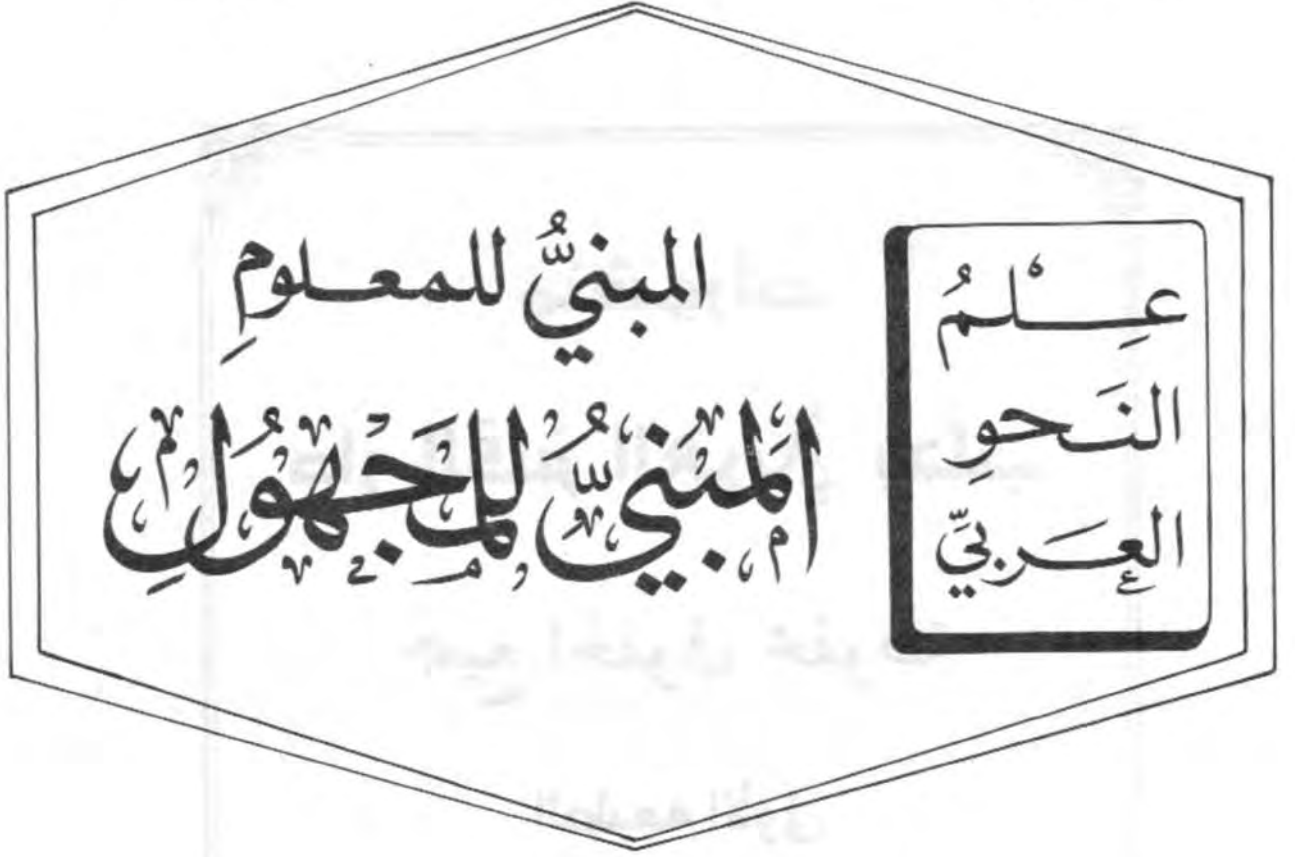 عِلْمُ
النَحوِ
العَربيِّ
المبنيُّ للمعلومِ
المَبْنيُّ للمَجْهُولِ